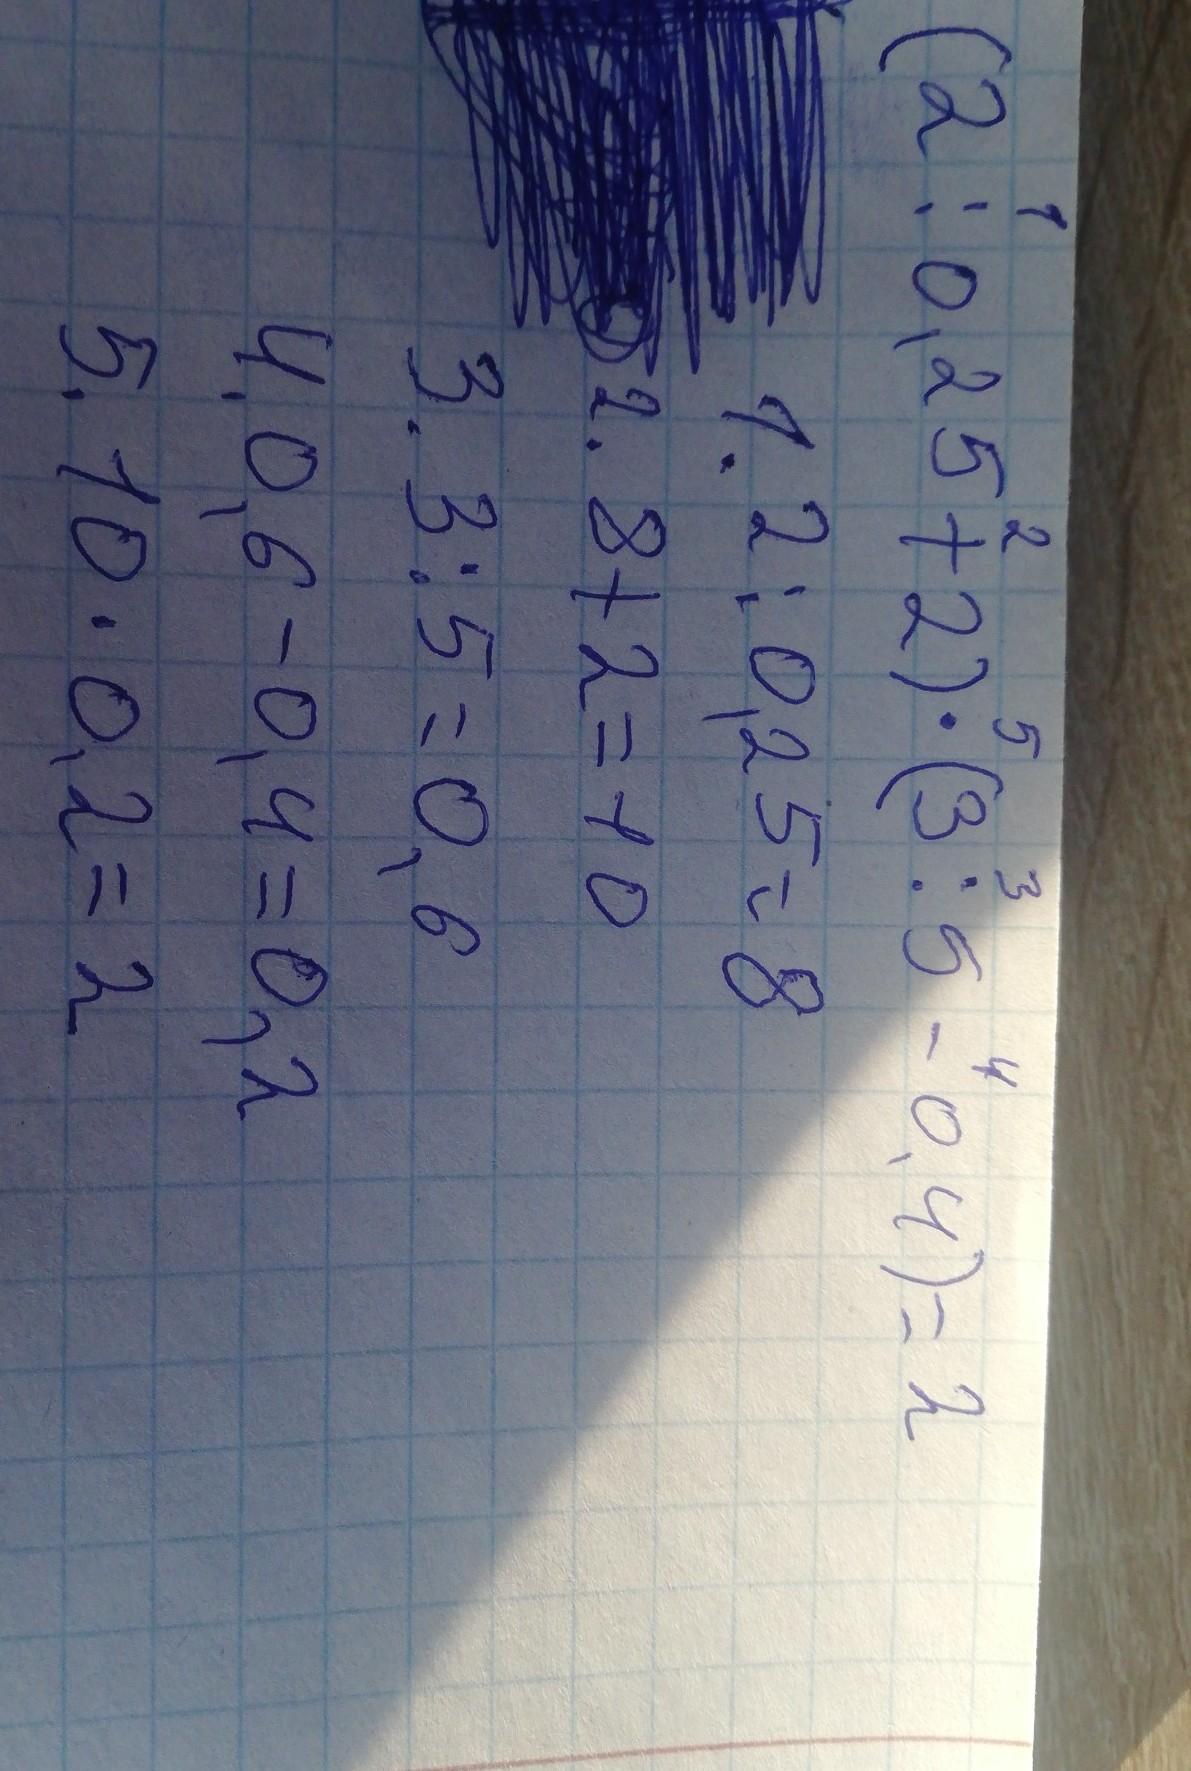 (2 : 0,25 + 2) · (3 : 5 - 0,4) = 2
1 2 5 3 4
1. 2 : 0,25 = 8
2. 8 + 2 = 10
3. 3 : 5 = 0,6
4. 0,6 - 0,4 = 0,2
5. 10 · 0,2 = 2